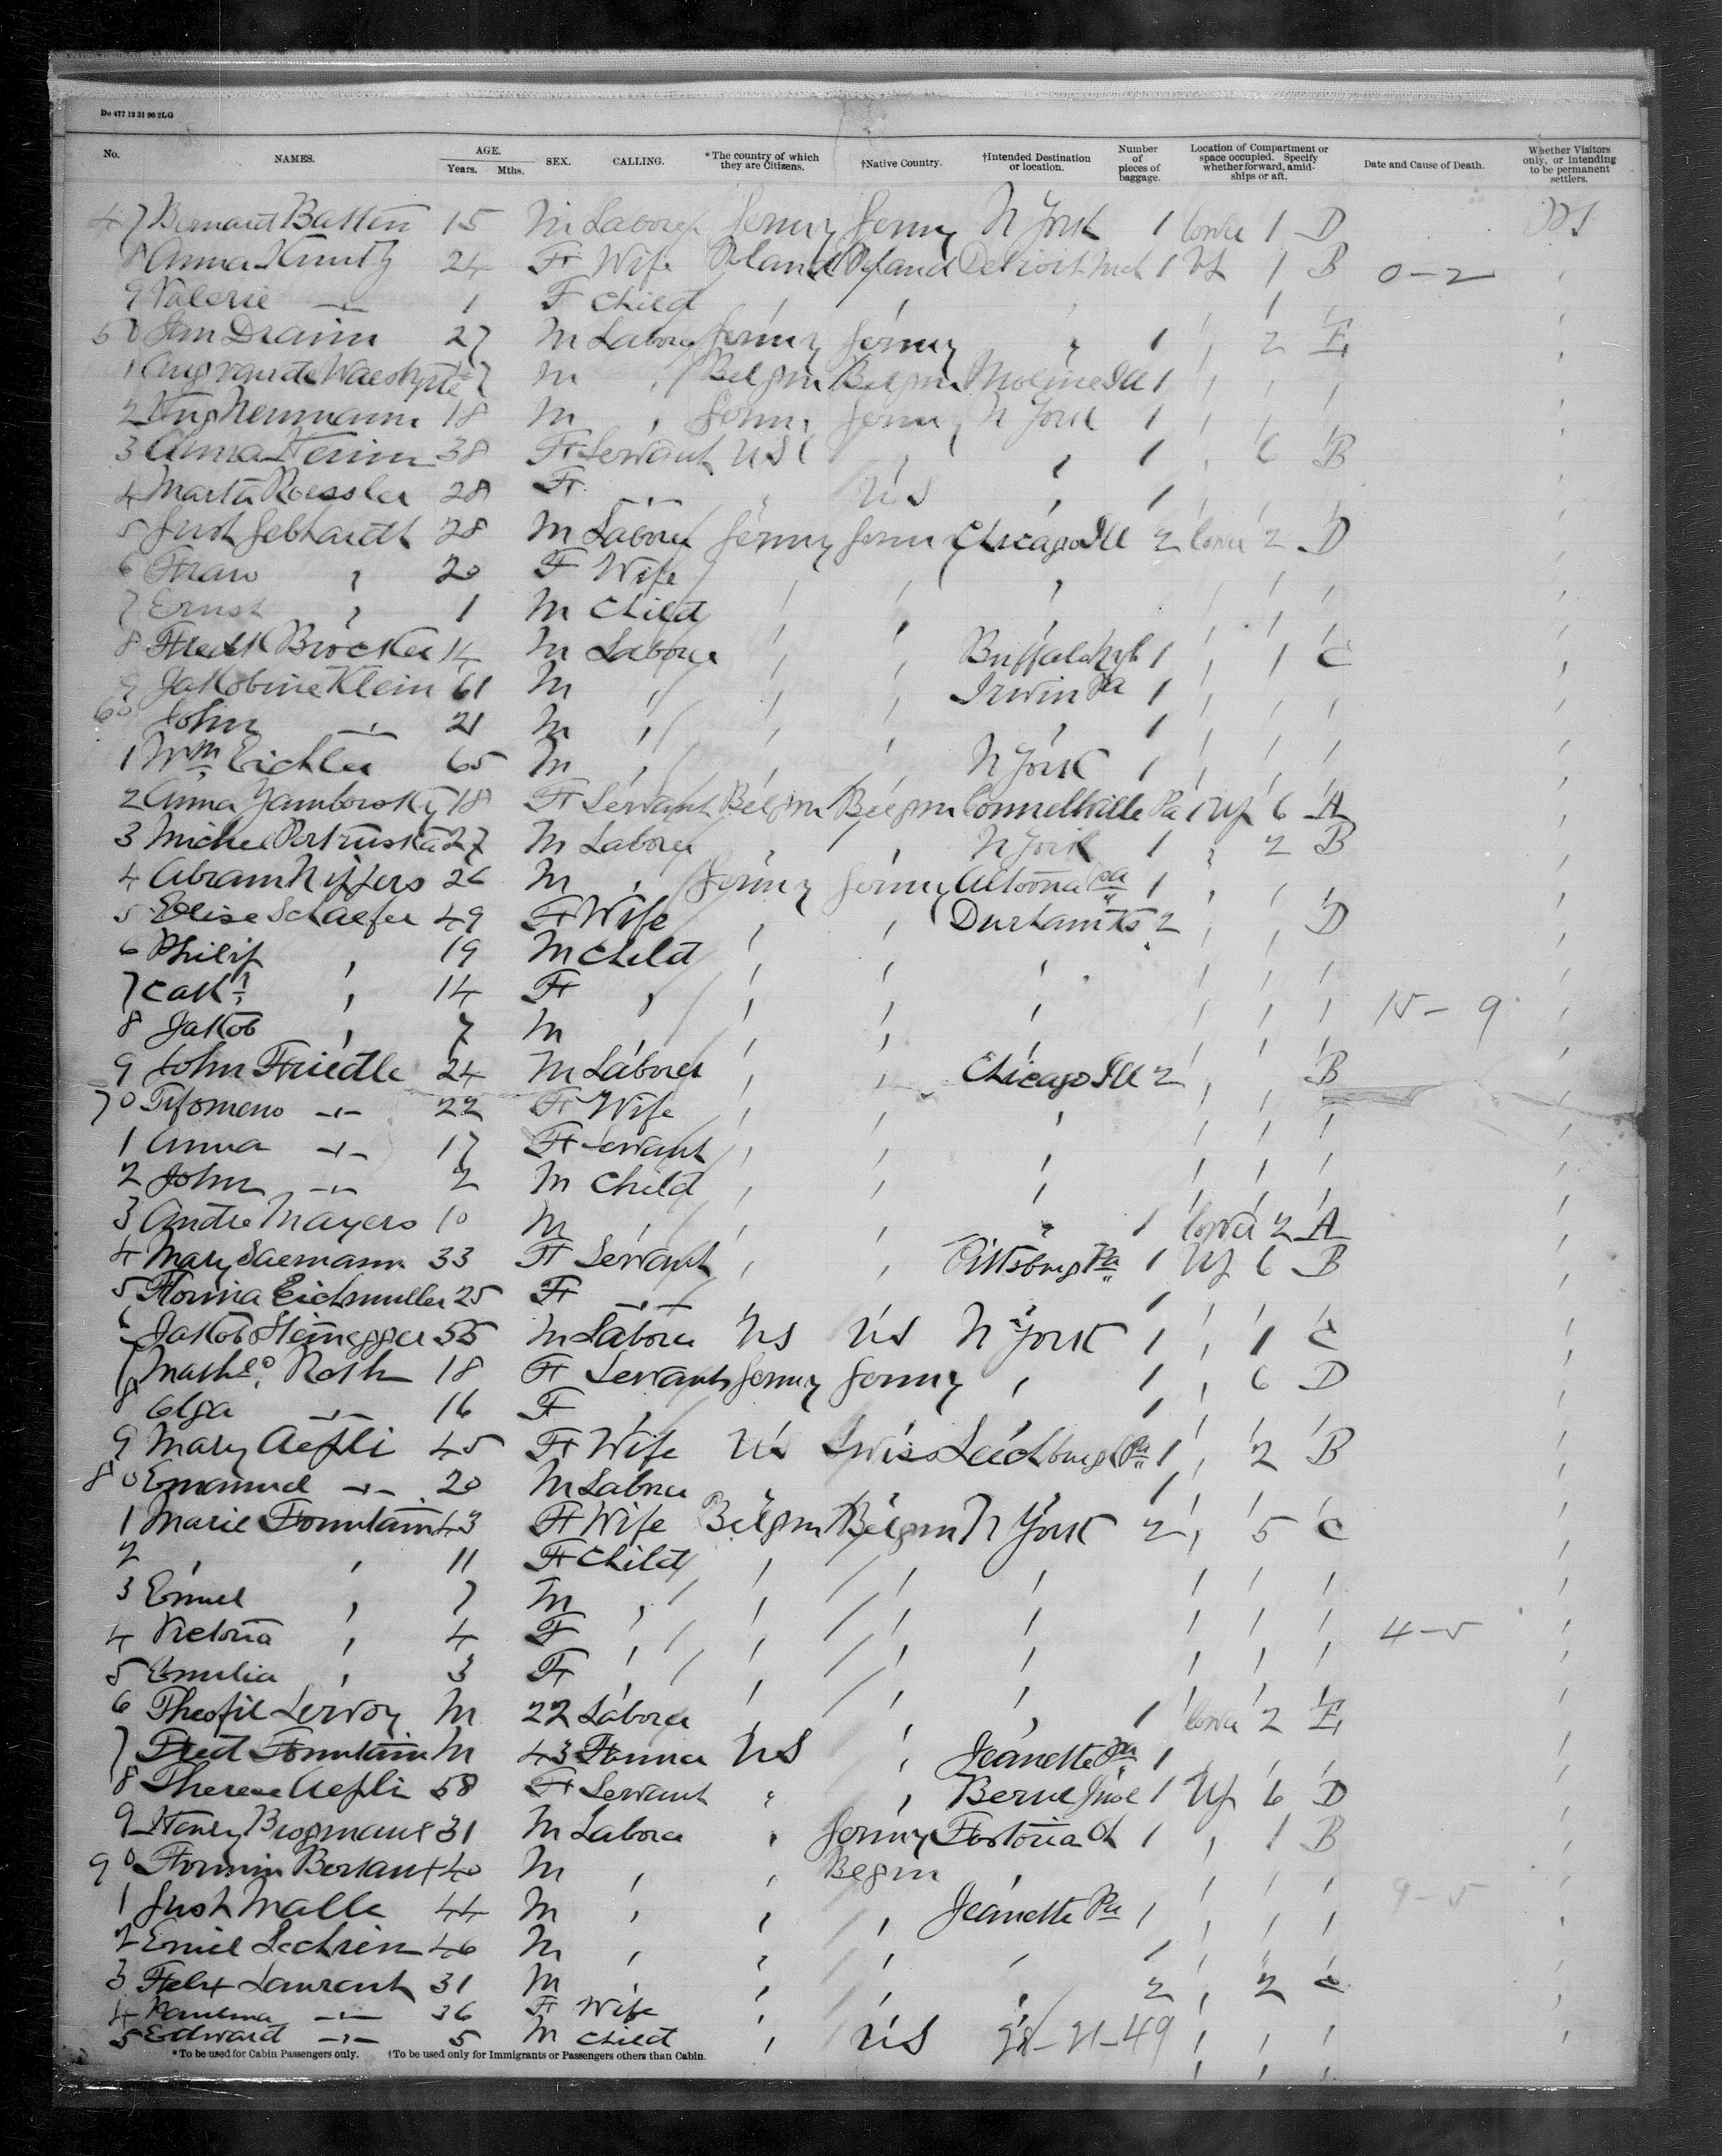 Do 477 12 31 90 2LG
No. NAMES. AGE. Years. Mths. SEX. CALLING. *The country of which they are Citizens. †Native Country. †Intended Destination or location. Number of pieces of baggage. Location of Compartment or space occupied. Specify whether forward, amidships or aft. Date and Cause of Death. Whether Visitors only, or intending to be permanent settlers.
47 Bernard Batten 15 M Laborer Germy Germy N York 1 lower 1 D
8 Anna 24 F Wife Poland Poland Detroit Mch 1 Up 1 B 0-2
9 Valerie -"- 1 F Child " " " " 1 "
50 Jan 27 M Labor Germy Germy " 1 " 2 E
1 M " Belgm Belgm Moline Ill 1 " " "
2 Aug Neumann 18 M " Germ Germy N York 1 " " "
3 Anna 38 F Servant US " " 1 " 6 B
4 Marta Roessler 28 F -"- " US " 1 " " "
5 Gust Gebhardt 28 M Laborer Germy Germy Chicago Ill 2 lower 2 D
6 Frau " 20 F Wife " " " " " "
7 Ernst " 1 M Child " " " " " "
8 Fredk Brocker 14 M Laborer " " Buffalo 1 " 1 C
9 Jakobine Klein 61 M " " " Irwin Pa 1 " " "
60 John -"- 21 M " " " " 1 " " "
1 Wm Eichler 65 M " " " N York 1 " " "
2 Anna Jamborsky 18 F Servant Belgm Belgm Connellville Pa 1 Up 6 A
3 Michel 27 M Laborer " " N York 1 " 2 B
4 Abram 26 M " Germy Germy Altoona Pa 1 " " "
5 Elise Schaefer 49 F Wife " " Durham Ks 2 " " D
6 Philip " 19 M Child " " " " " "
7 Cath " 14 F " " " " " " "
8 Jakob " 7 M " " " " " " 15-9
9 John Friedle 24 M Laborer " " Chicago Ill 2 " B
70 -"- 22 F Wife " " " " " "
1 Anna -"- 17 F Servant " " " " " "
2 John -"- 2 M Child " " " " " "
3 Andre Mayers 10 M " " " " 1 lower 2 A
4 Mary Saemann 33 F Servant " " Pittsburg Pa 1 Up 6 B
5 Florina Eichmuller 25 F -"- " " " 1 " " "
6 Jakob Steinegger 55 M Laborer US US N York 1 " 1 C
7 Roth 18 F Servant Germy Germy " 1 " 6 D
8 Olga -"- 16 F " " " " 1 " " "
9 Mary Aepli 45 F Wife US Swiss Leechburgh Pa 1 " 2 B
80 Emanuel -"- 20 M Laborer " " " 1 " " "
1 Marie Fountain 43 F Wife Belgm Belgm N York 2 " 5 C
2 " " 11 F Child " " " " " "
3 Emuel " 7 M " " " " " " "
4 Victoria " 4 F " " " " " " " 4-5
5 Emulia " 3 F " " " " " " "
6 Theofil Lervoy M 22 Laborer " " " 1 lower 2 E
7 Fred Fountain M 43 Farmer US " Jeanette Pa 1 " " "
8 Therese Aepli 58 F Servant " " Berne 1 Up 6 D
9 Henry 31 M Laborer " Germy Fostoria Oh 1 " 1 B
90 Firmin 40 M " " Belgm " " " "
1 Gust Malle 44 M " " " Jeanette Pa 1 " " " 9-5
2 Emile 46 M " " " " 1 " " "
3 Felix Laurent 31 M " " " " 2 " 2 C
4 -"- 36 F Wife " " " " " "
5 Edward -"- 5 M Child " US 28-21-49 " " "
*To be used for Cabin Passengers only. †To be used only for Immigrants or Passengers others than Cabin.